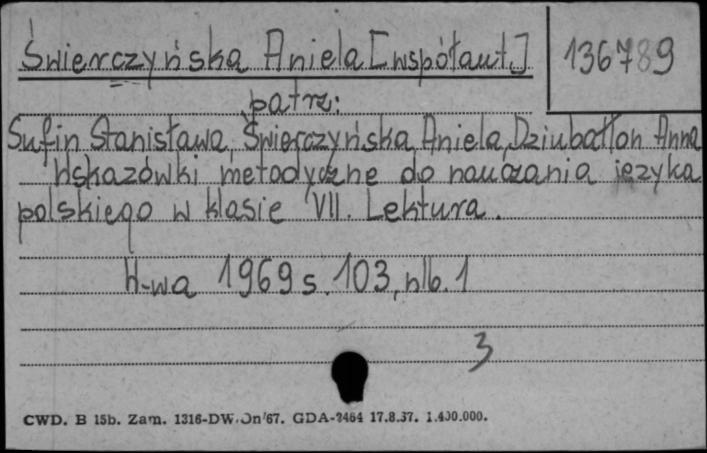 Świerczyńska Aniela [współaut.]
136789
patrz:
Sufin Stanisława, Świerczyńska Aniela, Dziubałton Anna
Wskazówki metodyczne do nauczania języka
polskiego w klasie VII. Lektura.
W-wa 1969 s. 103, nlb. 1
3
CWD. B 15b. Zam. 1316-DW. Dn/67. GDA-2464 17.8.67. 1.400.000.